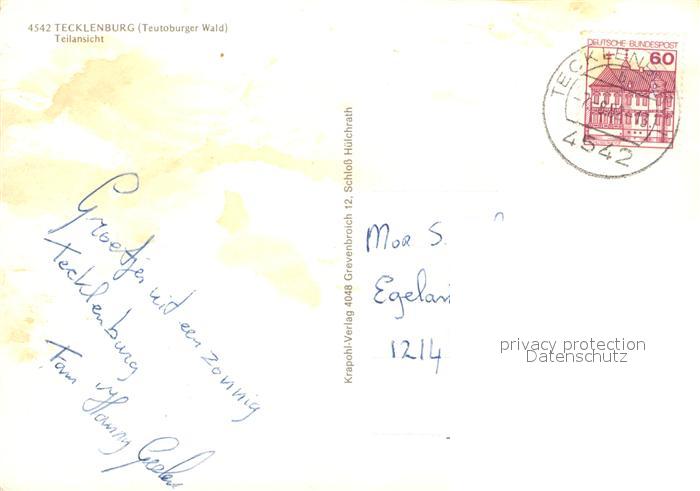 4542 TECKLENBURG (Teutoburger Wald)
Teilansicht
DEUTSCHE BUNDESPOST
60
TECKLENBURG
4542
Groetjes uit een zonnig
Tecklenburg
Fam
Krapohl-Verlag 4048 Grevenbroich 12, Schloß Hülchrath
S.
1214
privacy protection
Datenschutz